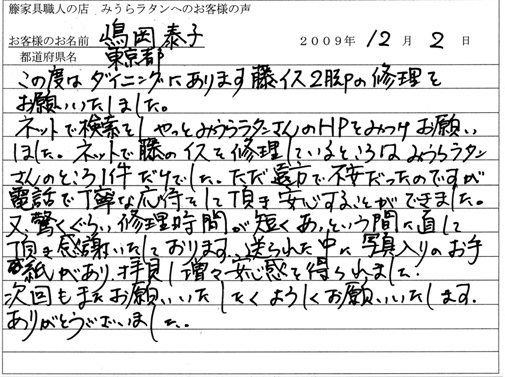 籐家具職人の店　みうらラタンへのお客様の声
お客様のお名前 嶋岡 泰子 2009年 12月 2日
都道府県名 東京都
この度はダイニングにあります藤イス2脚の修理を
お願いいたしました。
ネットで検索をし やっとみうらラタンさんのHPをみつけ お願い
しました。ネットで藤のイスを修理しているところは みうらラタン
さんのところ1件だけでした。ただ遠方で不安だったのですが
電話で丁寧な応待をして頂き安心することができました。
又、驚くぐらい修理時間が短く あっという間に直して
頂き感謝いたしております。送られた中に写真入りのお手
紙があり、拝見し増々安心感を得られました!
次回もまたお願いいたしたくよろしくお願いいたします。
ありがとうございました。